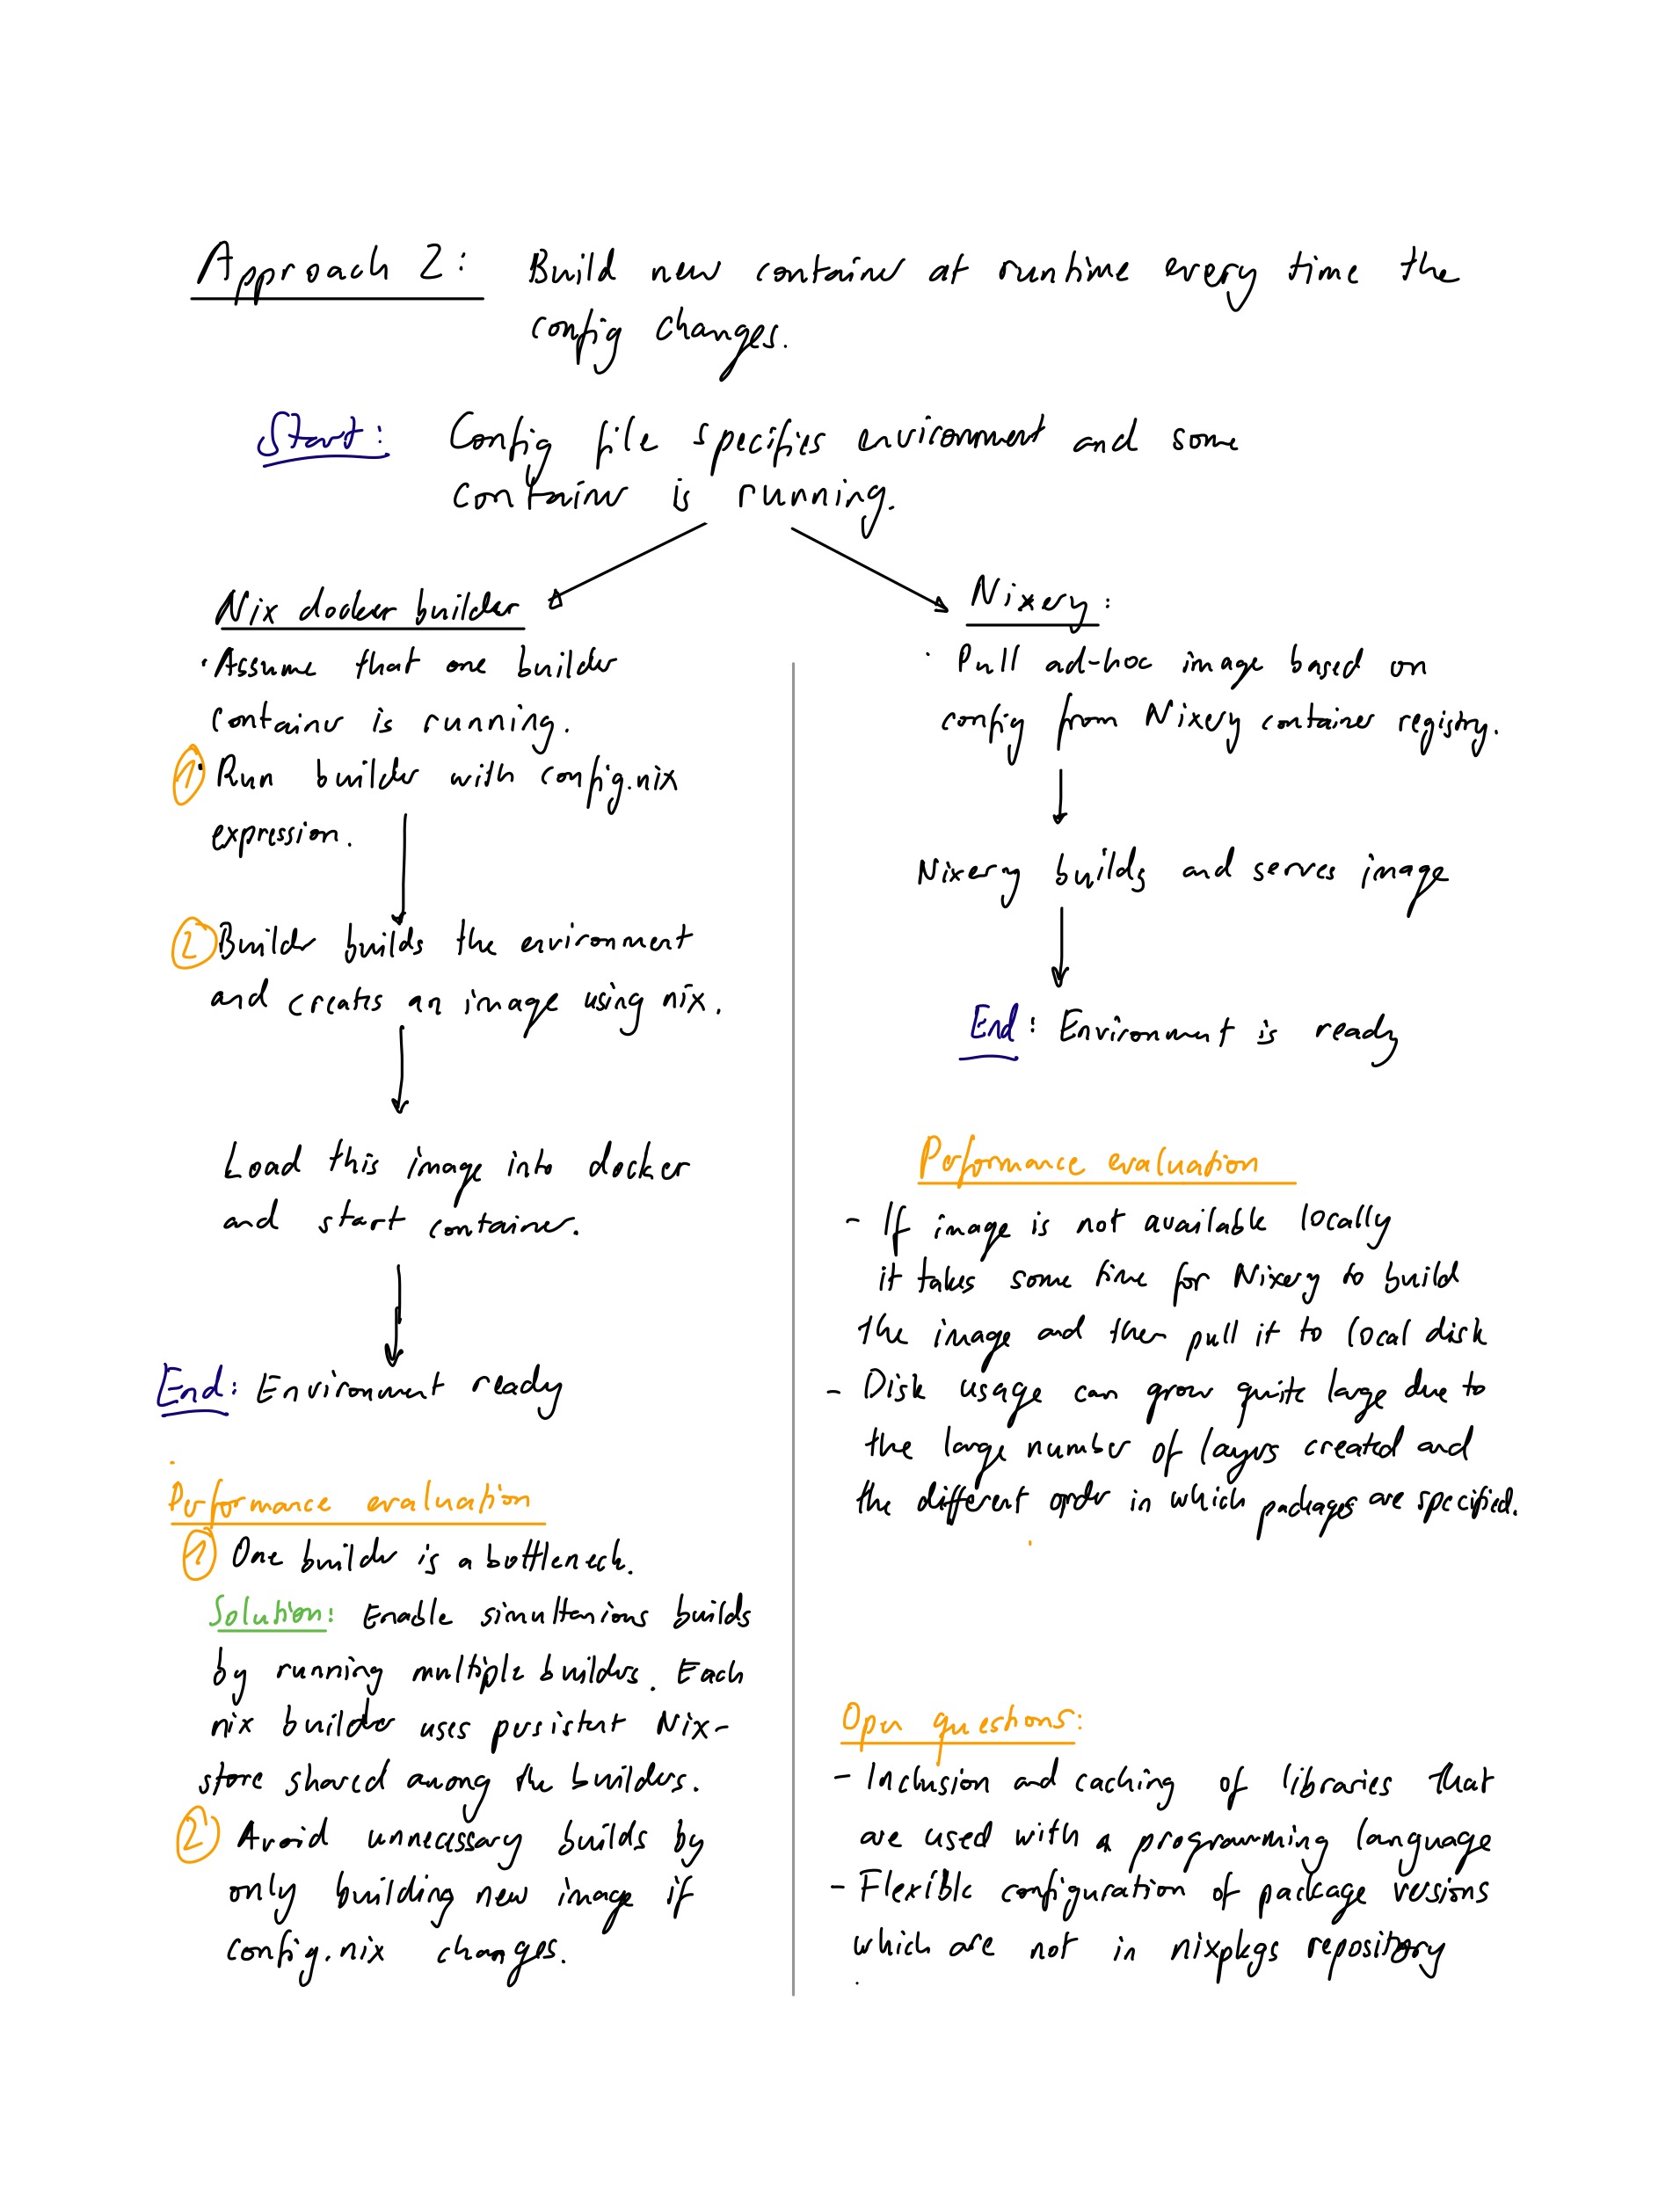 Approach 2: Build new container at runtime every time the
config changes.
Start: Config file specifies environment and some
container is running.
Nix docker builder
· Assume that one builder
container is running.
1 · Run builder with config.nix
expression.
2 Builder builds the environment
and creates an image using nix.
Load this image into docker
and start container.
End: Environment ready
Performance evaluation
1 One builder is a bottleneck.
Solution: Enable simultanious builds
by running multiple builders. Each
nix builder uses persistent Nix-
store shared among the builders.
2 Avoid unnecessary builds by
only building new image if
config.nix changes.
Nixery:
· Pull ad-hoc image based on
config from Nixery container registry.
Nixery builds and serves image
End: Environment is ready
Performance evaluation
- If image is not available locally
it takes some time for Nixery to build
the image and then pull it to local disk
- Disk usage can grow quite large due to
the large number of layers created and
the different order in which packages are specified.
Open questions:
- Inclusion and caching of libraries that
are used with a programming language
- Flexible configuration of package versions
which are not in nixpkgs repository